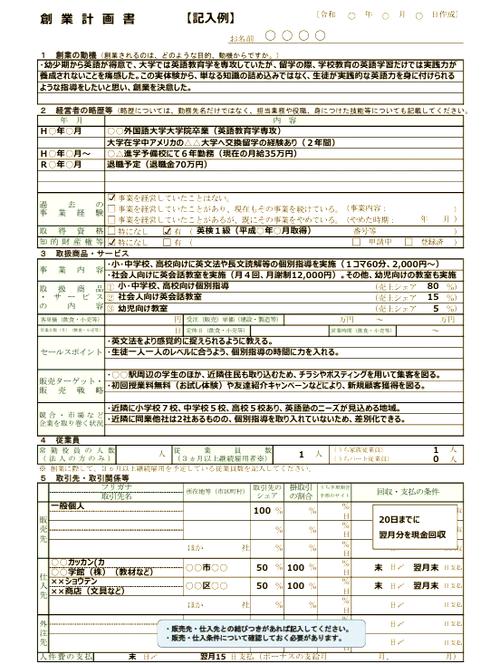 創業計画書 【記入例】
〔令和 ○ 年 ○ 月 ○ 日作成〕
お名前 ○○○○
1 創業の動機（創業されるのは、どのような目的、動機からですか。）
・幼少期から英語が得意で、大学では英語教育学を専攻していたが、留学の際、学校教育の英語学習だけでは実践力が
養成されないことを痛感した。この実体験から、単なる知識の詰め込みではなく、生徒が実践的な英語力を身に付けられる
ような指導をしたいと思い、創業を決意した。
2 経営者の略歴等（略歴については、勤務先名だけではなく、担当業務や役職、身につけた技能等についても記載してください。
年 月 内 容
H○年○月 ○○外国語大学大学院卒業（英語教育学専攻）
大学在学中アメリカの△△大学へ交換留学の経験あり（２年間）
H○年○月～ ○△進学予備校にて６年勤務（現在の月給35万円）
R○年○月 退職予定（退職金70万円）
過去の事業経験
☑事業を経営していたことはない。
□事業を経営していたことがあり、現在もその事業を続けている。（事業内容： ）
□事業を経営していたことがあるが、既にその事業をやめている。（やめた時期： 年 月）
取得資格 □特になし ☑有（ 英検１級（平成○年○月取得） 番号等 ）
知的財産権等 ☑特になし □有（ □申請中 □登録済 ）
3 取扱商品・サービス
事業内容
・小・中学校、高校向けに英文法や長文読解等の個別指導を実施（１コマ60分、2,000円～）
・社会人向けに英会話教室を実施（月４回、月謝制12,000円）。その他、幼児向けの教室も実施
取扱商品・サービスの内容
① 小・中学校、高校向け個別指導 （売上シェア 80 %）
② 社会人向け英会話教室 （売上シェア 15 %）
③ 幼児向け教室 （売上シェア 5 %）
セールスポイント
・英文法をより感覚的に捉えられるように教える。
・生徒一人一人のレベルに合うよう、個別指導の時間に力を入れる。
販売ターゲット・販売戦略
・○○駅周辺の学生のほか、近隣住民も取り込むため、チラシやポスティングを用いて集客を図る。
・初回授業料無料（お試し体験）や友達紹介キャンペーンなどにより、新規顧客獲得を図る。
競合・市場など企業を取り巻く状況
・近隣に小学校７校、中学校５校、高校５校あり、英語塾のニーズが見込める地域。
・近隣に同業他社は２社あるものの、個別指導を取り入れていないため、差別化できる。
4 従業員
常勤役員の人数（法人の方のみ） 人 従業員数（３ヵ月以上継続雇用者※） 1 人 （うち家族従業員） 1 人
（うちパート従業員） 0 人
※ 創業に際して、３ヵ月以上継続雇用を予定している従業員数を記入してください。
5 取引先・取引関係等
フリガナ
取引先名 所在地等（市区町村） 取引先のシェア 掛取引の割合 回収・支払の条件
販売先
一般個人 100 %
ほか 社
20日までに
翌月分を現金回収
仕入先
○○カッカン(カ
○○学館（株）（教材など） ○○市○○ 50 % 100 % 末 日〆 翌月末 日支払
××ショウテン
××商店（文具など） ○○区○○ 50 % 100 % 末 日〆 翌月末 日支払
ほか 社
外注先
・販売先・仕入先との結びつきがあれば記入してください。
・販売先・仕入条件について確認しておく必要があります。
人件費の支払 末 日〆 翌月15 日支払（ボーナスの支給月 月、 月）